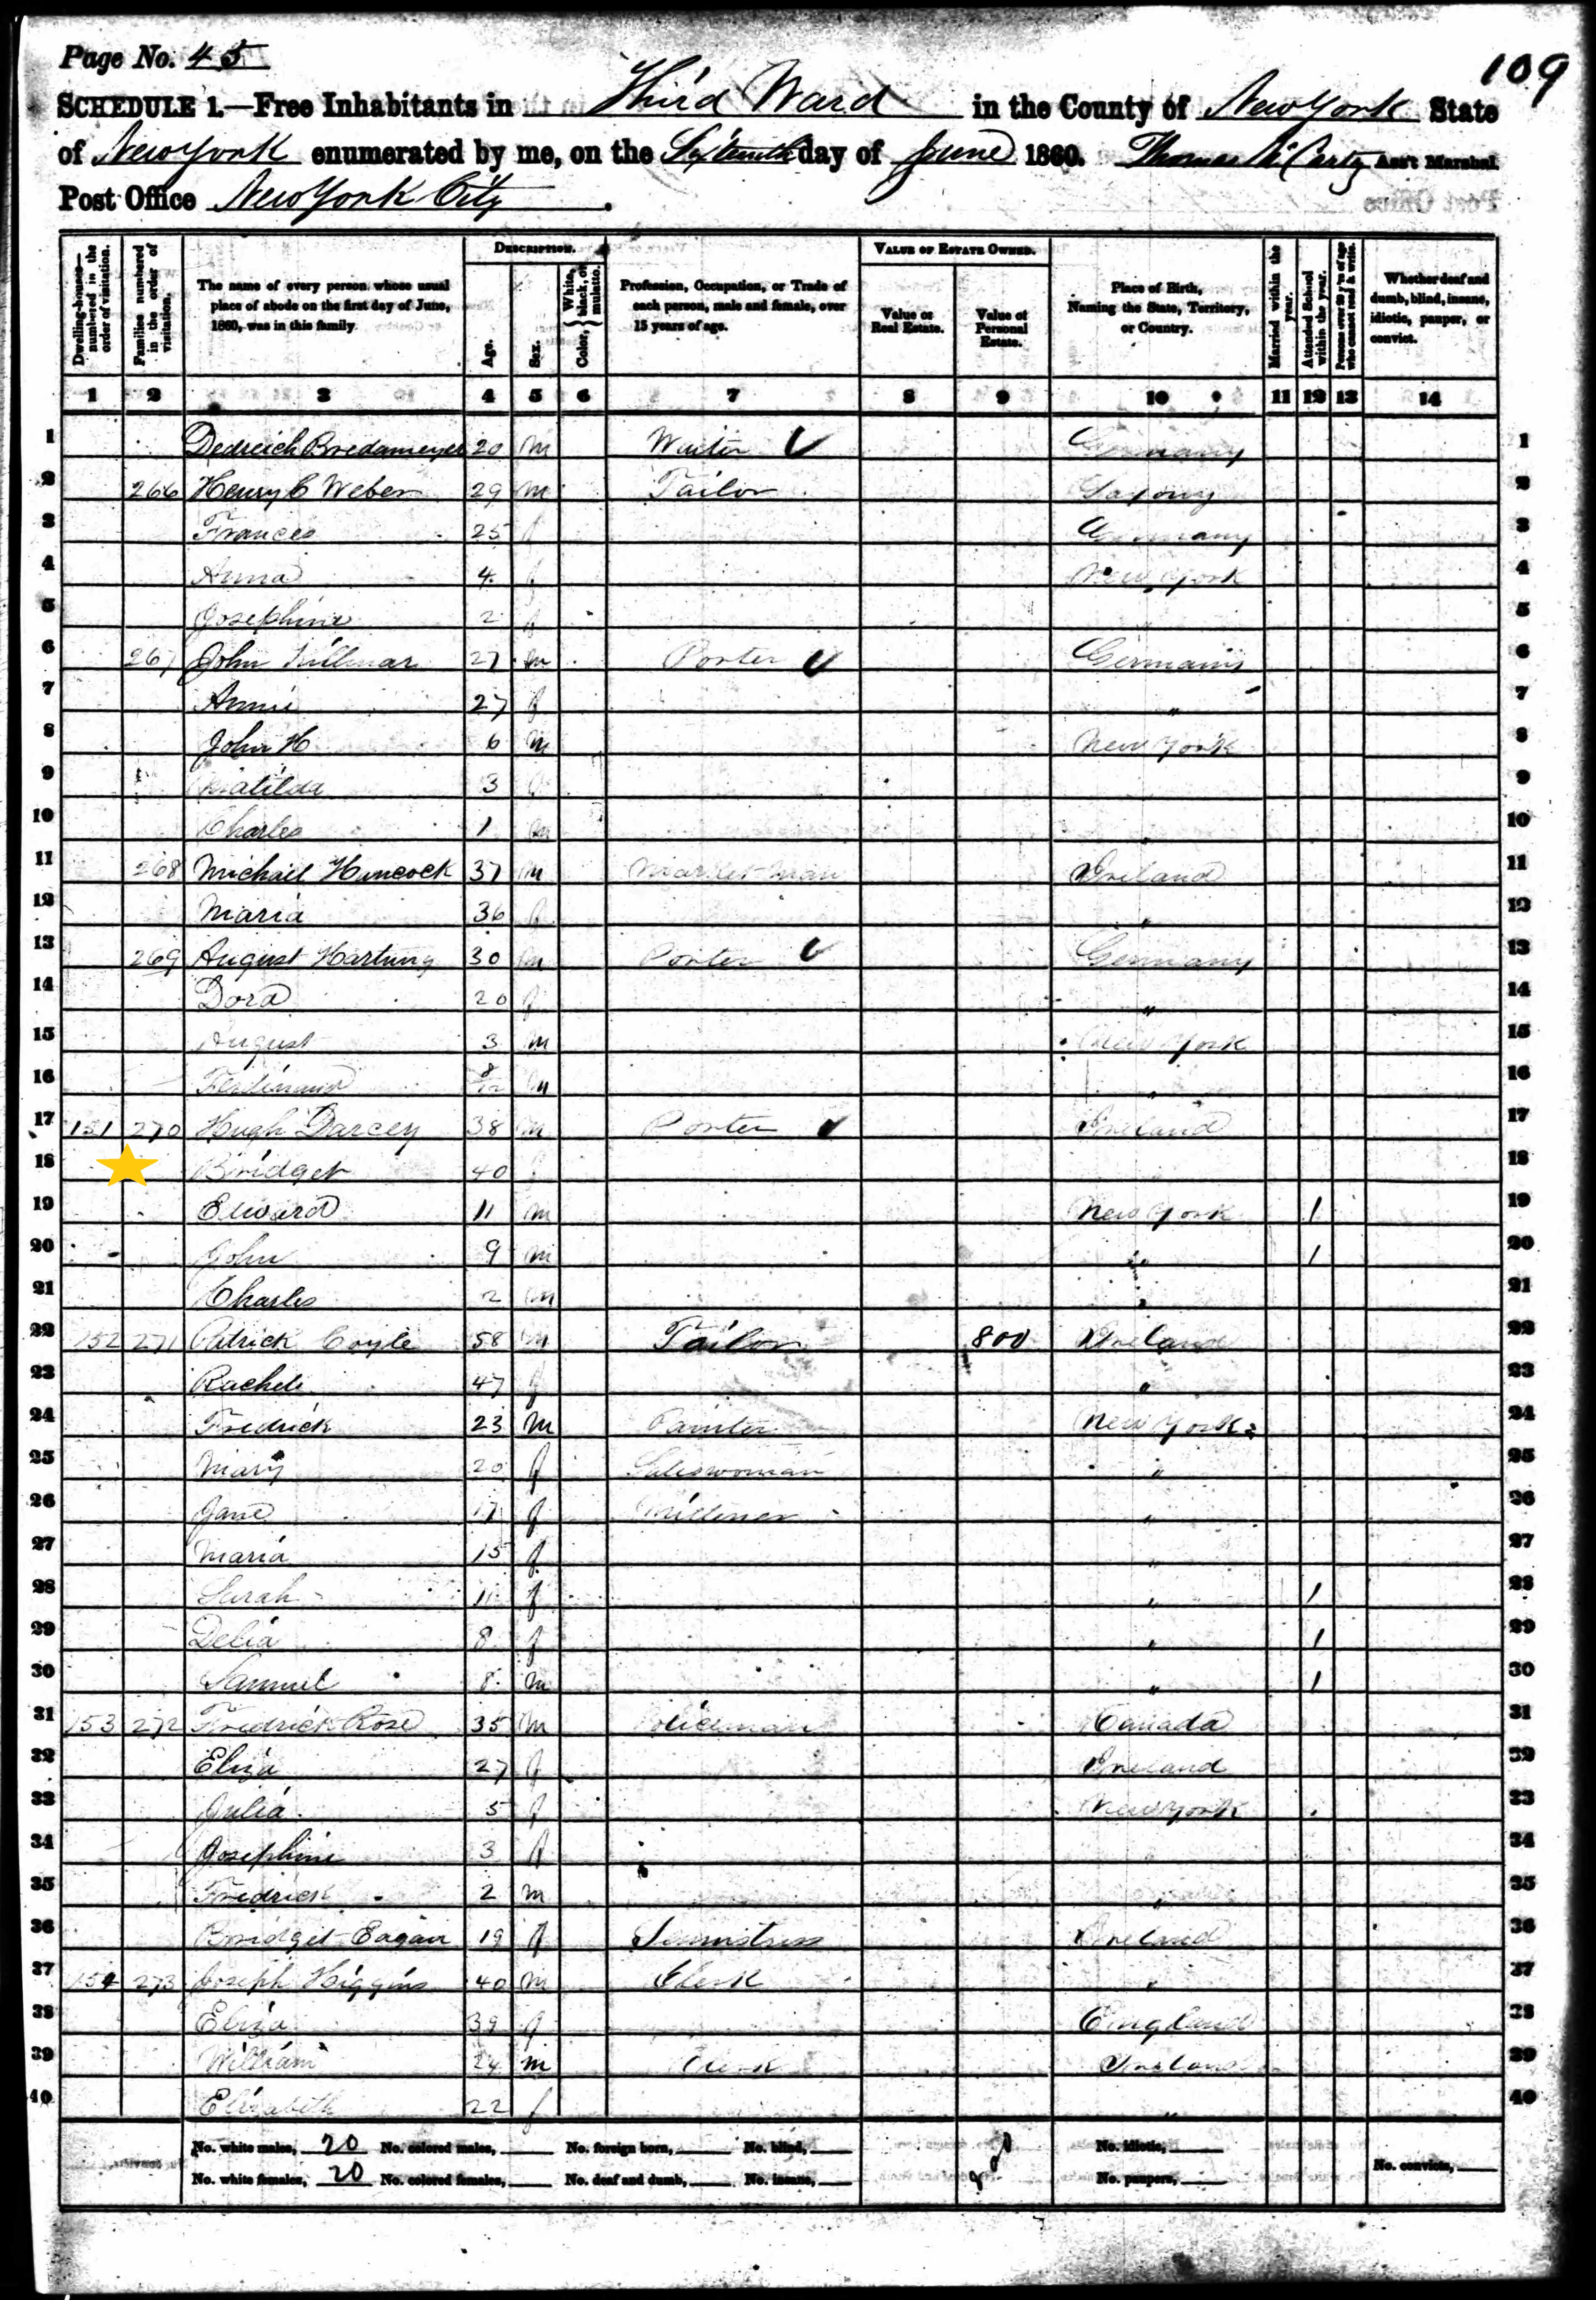 Page No. 45
109
SCHEDULE 1.—Free Inhabitants in Third Ward in the County of New York State
of New York enumerated by me, on the Sixteenth day of June 1860. Thomas McCarty Ass't Marshal.
Post Office New York City.
Dwelling-houses—numbered in the order of visitation.
Families numbered in the order of visitation.
The name of every person whose usual place of abode on the first day of June, 1860, was in this family.
DESCRIPTION.
Age.
Sex.
Color, White, black, or mulatto.
Profession, Occupation, or Trade of each person, male and female, over 15 years of age.
VALUE OF ESTATE OWNED.
Value of Real Estate.
Value of Personal Estate.
Place of Birth, Naming the State, Territory, or Country.
Married within the year.
Attended School within the year.
Persons over 20 y'rs of age who cannot read & write.
Whether deaf and dumb, blind, insane, idiotic, pauper, or convict.
1 2 3 4 5 6 7 8 9 10 11 12 13 14
1 Dedreich Bredameyer 20 m Waiter Germany 1
2 266 Henry C Weber 29 m Tailor Saxony 2
3 Frances 25 f Germany 3
4 Anna 4 f New York 4
5 Josephine 2 f 5
6 267 John Killmar 27 m Porter Germany 6
7 Annie 27 f " 7
8 John H 6 m New York 8
9 Matilda 3 f 9
10 Charles 1 m " 10
11 268 Michael Hancock 37 m Market Man Ireland 11
12 Maria 36 f " 12
13 269 August Hartung 30 m Porter Germany 13
14 Dora 20 f " 14
15 August 3 m New York 15
16 Ferdinand 8/12 m " 16
17 151 270 Hugh Darcey 38 m Porter Ireland 17
18 Bridget 40 18
19 Edward 11 m New York 1 19
20 John 9 m " 1 20
21 Charles 2 m " 21
22 152 271 Patrick Coyle 58 m Tailor 800 Ireland 22
23 Rachel 47 f " 23
24 Fredrick 23 m Painter New York 24
25 Mary 20 f Saleswoman " 25
26 Jane 17 f Milliner " 26
27 Maria 15 f " 27
28 Sarah 11 f " 1 28
29 Delia 8 f " 1 29
30 Samuel 8 m " 1 30
31 153 272 Fredrick Rose 35 m Policeman Canada 31
32 Eliza 27 f Ireland 32
33 Julia 5 f New York 33
34 Josephine 3 f 34
35 Fredrick 2 m " 35
36 Bridget Eagan 19 f Seamstress Ireland 36
37 154 273 Joseph Higgins 40 m Clerk " 37
38 Eliza 39 f England 38
39 William 24 m Clerk Ireland 39
40 Elizabeth 22 f " 40
No. white males, 20 No. colored males, No. foreign born, No. blind, No. idiotic,
No. white females, 20 No. colored females, No. deaf and dumb, No. insane, No. paupers, No. convicts,